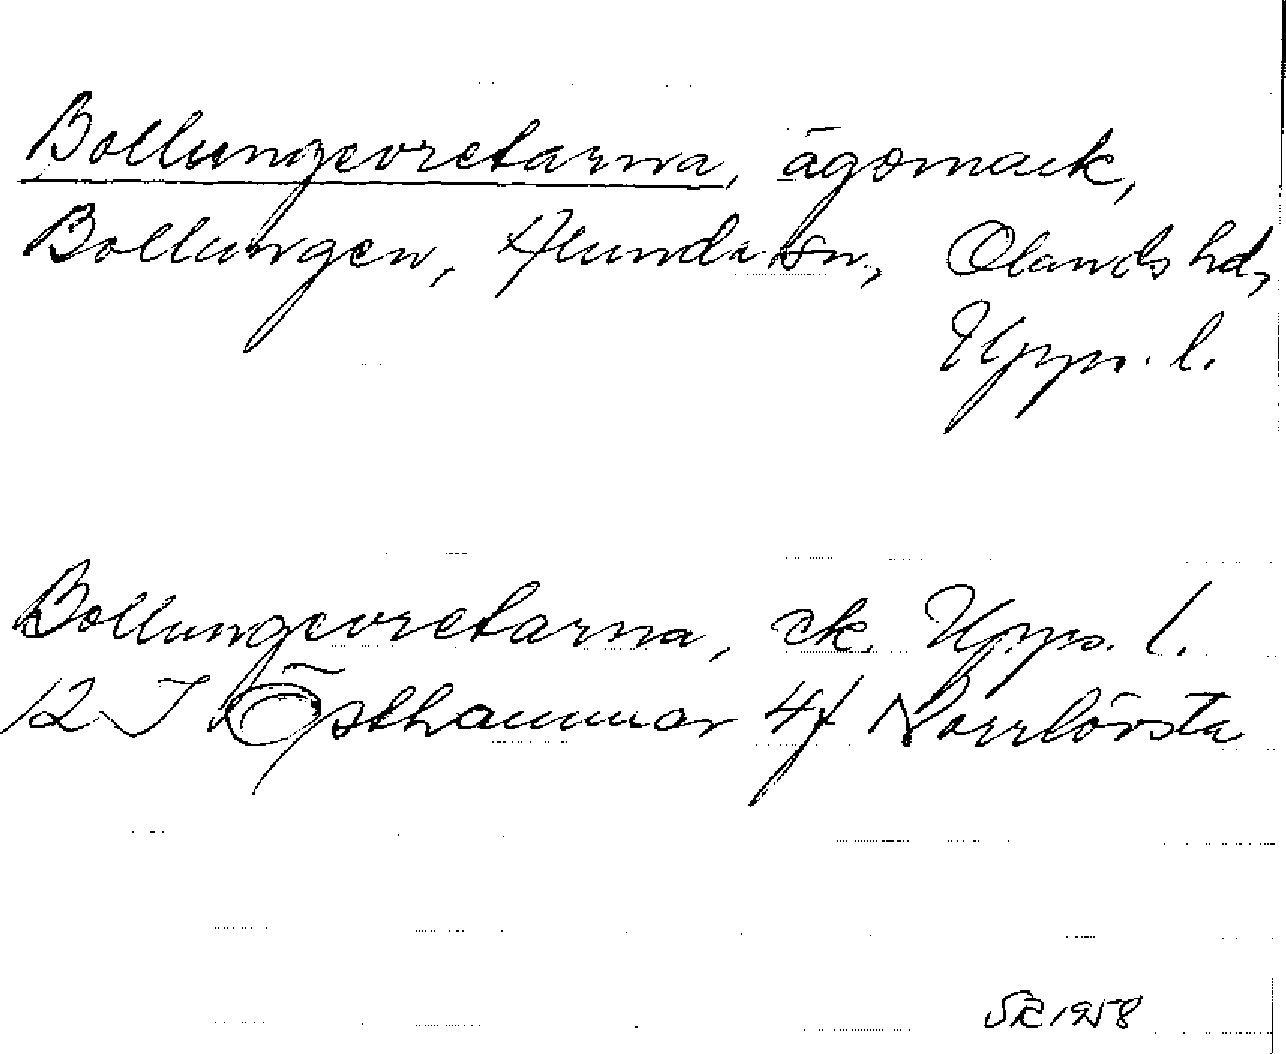 Bollungevretarna, ägomark,
Bollungen, Alunda sn, Olands hd,
Upps. l.
Bollungevretarna, ek. Upps. l.
12 I Östhammar 4f Norrlövsta
SR 1958